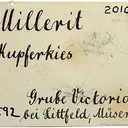 Millerit 2010
Kupferkies
Grube Victoria
592 bei Littfeld, Müsen